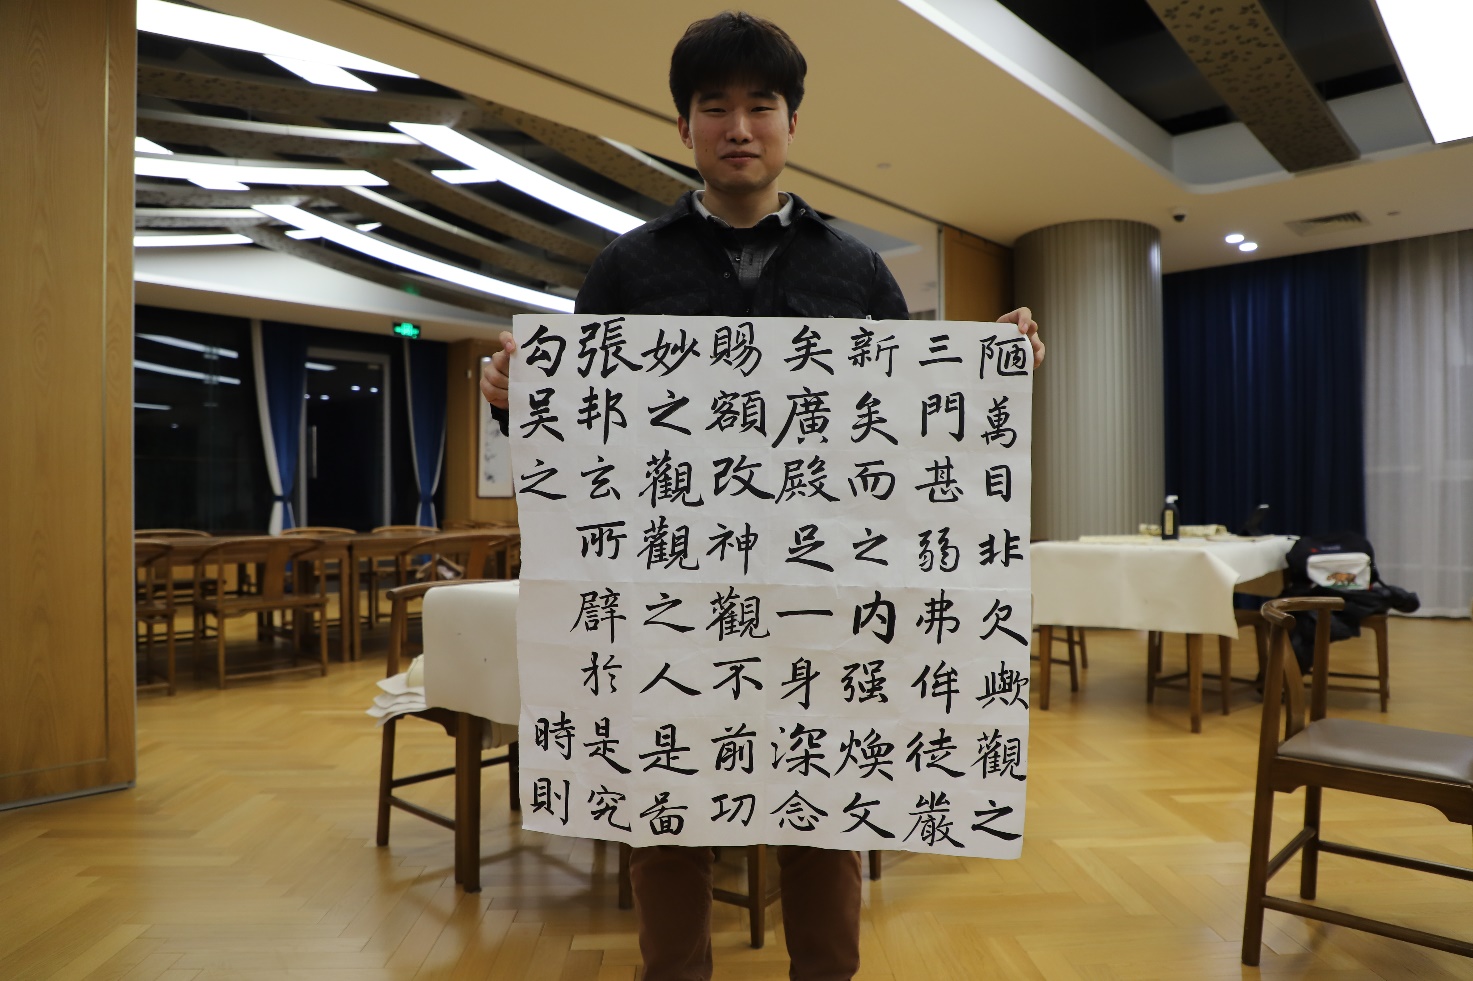 陋萬目非欠歟觀之
三門甚弱弗侔徒嚴
新矣而之内强煥文
矣廣殿足一身深念
賜額改神觀不前㓛
妙之觀觀之人是啚
張邦玄所辟於是究
勾吴之時則